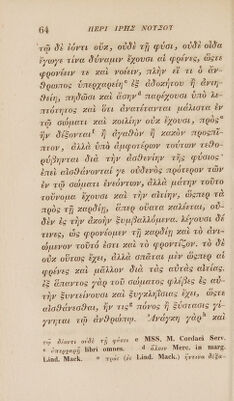 64 ΠΕΡΙ ΙΡΗΣ ΝΟΥΣΟΥ
τῷ δὲ ἐόντι οὐκ, οὐδὲ τῇ φύσι, οὐδὲ οἶδα
ἔγωγε τίνα δύναμιν ἔχουσι αἱ φρένες, ὥστε
φρονέειν τε καὶ νοέειν, πλὴν εἴ τι ὁ ἄν-
θρωπος ὑπερχαρείη ἐξ ἀδοκήτου ἢ ἀνιη-
θείη, πηδῶσι καὶ ἄσην παρέχουσι ὑπὸ λε-
πτότητος καὶ ὅτι ἀνατέτανται μάλιστα ἐν
τῷ σώματι καὶ κοιλίην οὐκ ἔχουσι, πρὸς
ἣν δέξονται ἢ ἀγαθὸν ἢ κακὸν προσπῖ-
πτον, ἀλλὰ ὑπὸ ἀμφοτέρων τούτων τεθο-
ρύβηνται διὰ τὴν ἀσθενίην τῆς φύσιος
ἐπεὶ αἰσθάνονταί γε οὐδενὸς πρότερον τῶν
ἐν τῷ σώματι ἐνεόντων, ἀλλὰ μάτην τοῦτο
τοὔνομα ἔχουσι καὶ τὴν αἰτίην, ὥσπερ τὰ
πρὸς τῇ καρδίῃ, ἅπερ οὔατα καλέεται, οὐ-
δὲν ἐς τὴν ἀκοὴν ξυμβαλλόμενα. λέγουσι δέ
τινες, ὡς φρονέομεν τῇ καρδίῃ καὶ τὸ ἀνι-
ώμενον τοῦτό ἐστι καὶ τὸ φροντίζον. τὸ δὲ
οὐκ οὕτως ἔχει, ἀλλὰ σπᾶται μὲν ὥσπερ αἱ
φρένες καὶ μᾶλλον διὰ τὰς αὐτὰς αἰτίας.
ἐξ ἅπαντος γὰρ τοῦ σώματος φλέβες ἐς αὐ-
τὴν ξυντείνουσι καὶ ξυγκληΐσας ἔχει, ὥστε
αἰσθάνεσθαι, ἤν τις πόνος ἢ ξύστασις γί-
γνηται τῷ ἀνθρώπῳ. Ἀνάγκη γὰρ καὶ
MSS. M. Cordaei Serv.
libri omnes. Merc. in marg.
Lind. Mack. Lind. Mack.)